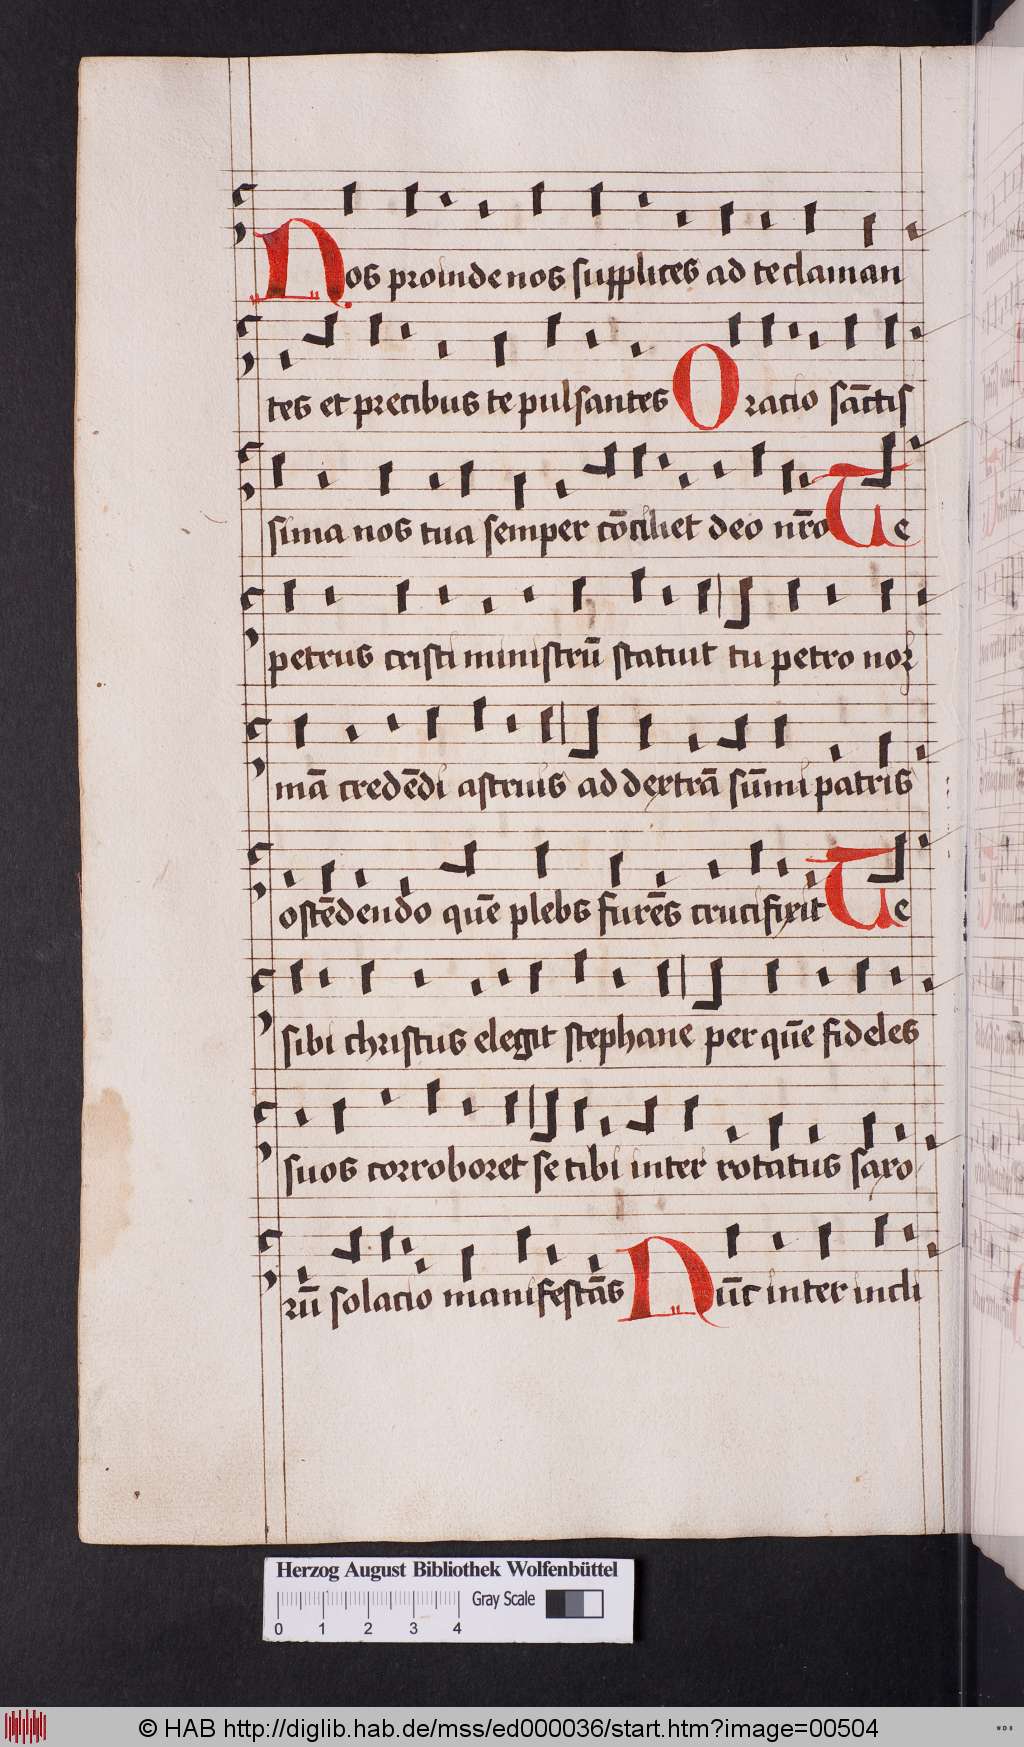 Nos proinde nos supplices ad te claman
tes et precibus te pulsantes Oracio sāctis
sima nos tua semper cōciliet deo nr̄o Te
petrus cristi ministrū statuit tu petro noꝝ
mā credēdi astruis ad dextrā sūmi patris
ostēdendo quē plebs furēs crucifixit Te
sibi christus elegit stephane per quē fideles
suos corroboret se tibi inter rotatus saxo
rū solacio manifestās Nūc inter incli
Herzog August Bibliothek Wolfenbüttel
Gray Scale
0 1 2 3 4
© HAB http://diglib.hab.de/mss/ed000036/start.htm?image=00504